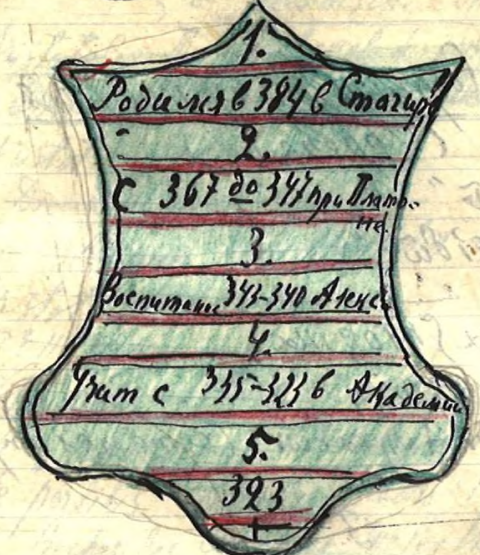 1.
Родился в 384 в Стагире
2.
С 367 до 347 при Плато-
не.
3.
Воспитание 343-340 Алекс
4.
Учит с 335-323 в Академии
5.
323